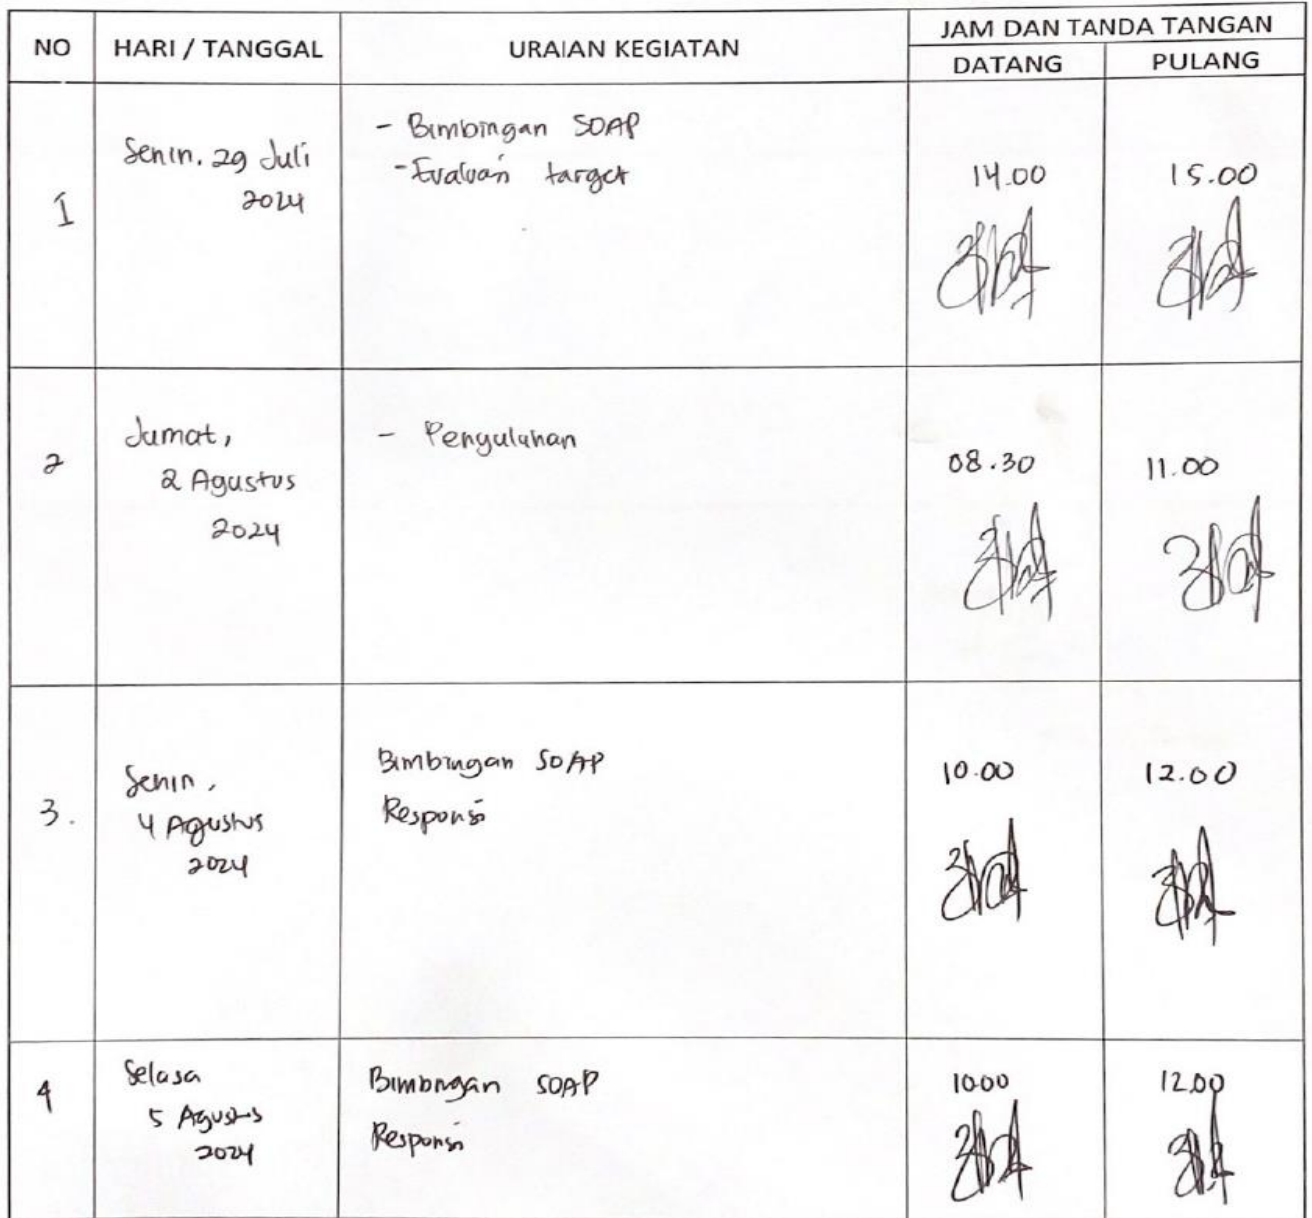 NO HARI / TANGGAL URAIAN KEGIATAN JAM DAN TANDA TANGAN
DATANG PULANG
1 Senin, 29 Juli 2024
- Bimbingan SOAP
- Evaluasi target
14.00 15.00
2 Jumat, 2 Agustus 2024
- Penyuluhan
08.30 11.00
3. Senin, 4 Agustus 2024
Bimbingan SOAP
Responsi
10.00 12.00
4 Selasa 5 Agustus 2024
Bimbingan SOAP
Responsi
10.00 12.00